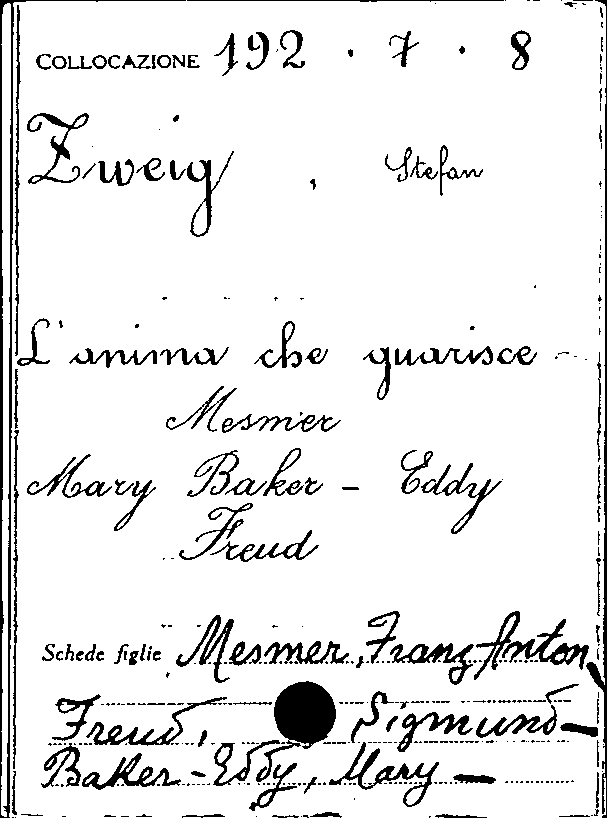 COLLOCAZIONE 192 . 7 . 8
Zweig , Stefan
L'anima che guarisce -
Mesmer
Mary Baker - Eddy
Freud
Schede figlie Mesmer, Franz Anton,
Freud, Sigmund —
Baker - Eddy, Mary —